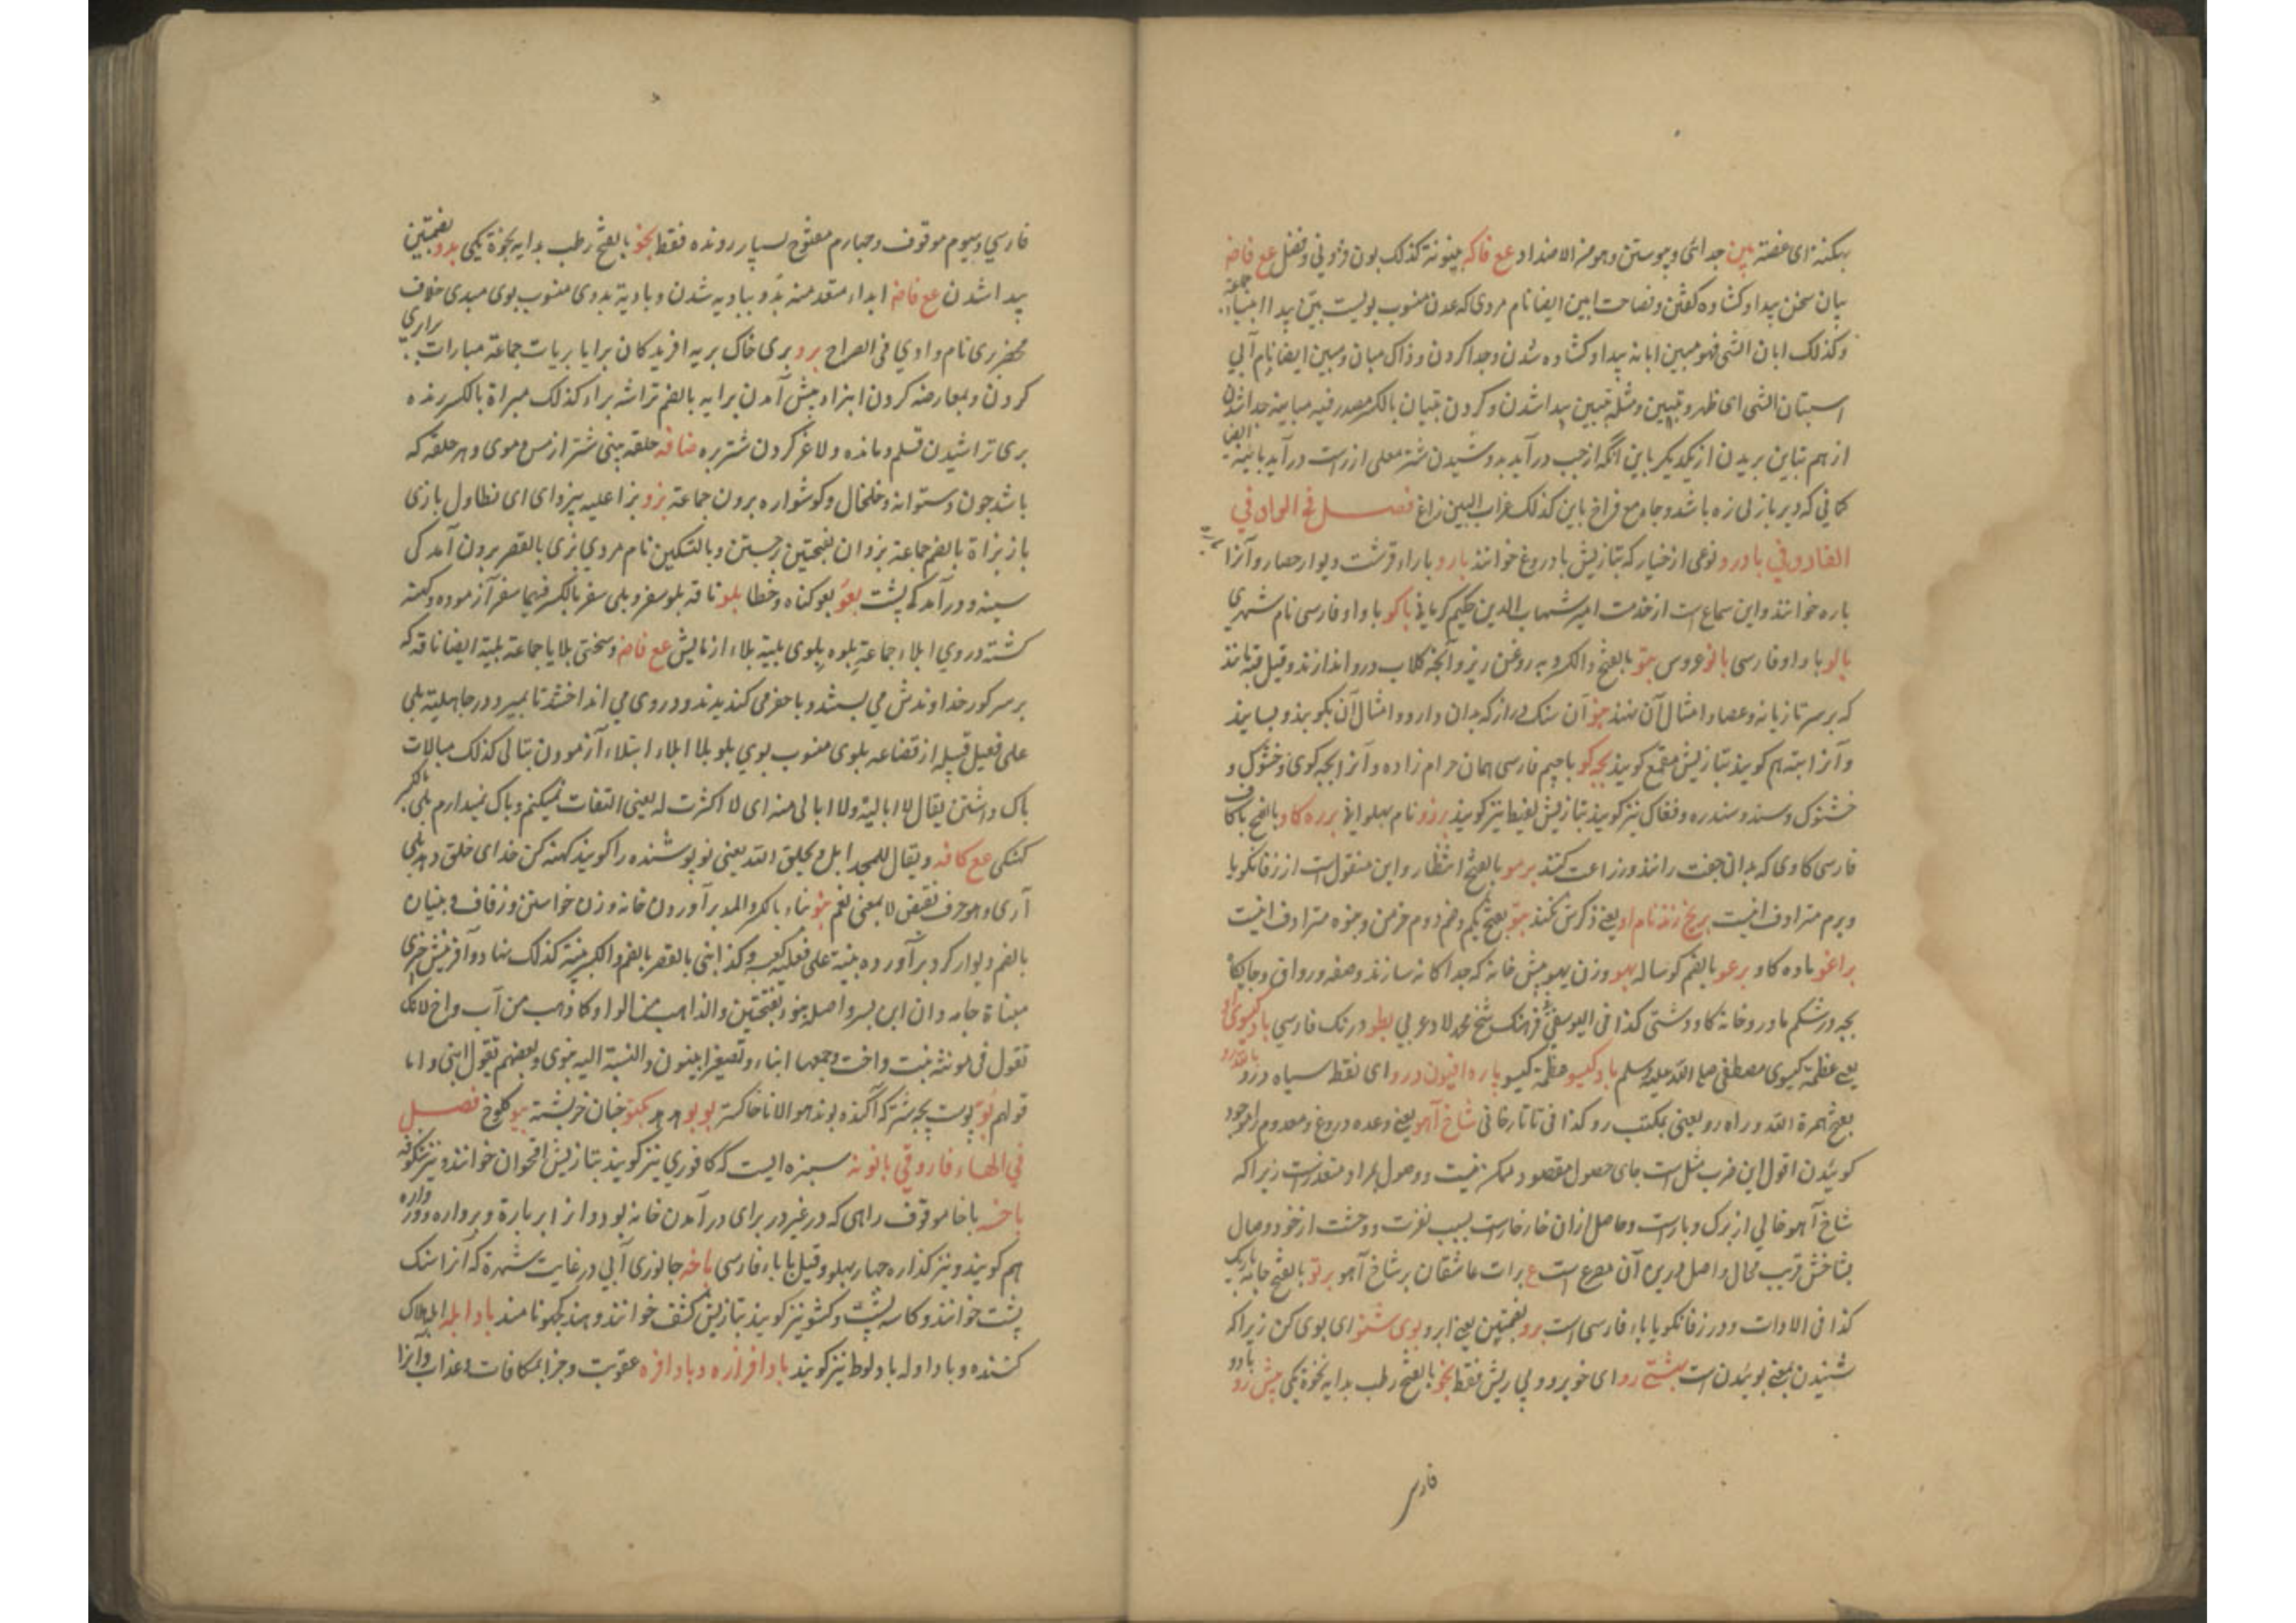 بیان سخن پیدا و کشاده کفتن و فصاحت ابین ایضا نام مردی که عدن منسوب بویست بیّن پیدا ابیناء جمعه
و کذلک ابان الشی فهو مبین ابانه پیدا و کشاده شدن و جدا کردن و ذاک مبان و مبین ایضا نام آبی
استبان الشی ای ظهر و تبیین و مثله تبیین پیدا شدن و کردن تبیان بالکسر مصدر فیه مباینه جدا شدن
از هم تباین بریدن از یکدیکر باین آنکه از چپ درآید بدوشیدن شتر معلی از راست درآید باینه ایضا
کمانی که دیر باز لی زه باشد و جامع فراخ باین کذلک غراب البین زاغ فصل فی الواو فی
الفاروقی بادرو نوعی از خیار که بتازیش بادروغ خوانند بارو باراء قرشت دیوار حصار و آنرا
باره خوانند و این سماع است از خدمت امیر شهاب الدین حکیم کرمانی باکو با واو فارسی نام شهری
بالو با واو فارسی بانو عروس بتو بالفتح و الکسر و به روغن ریز و آنچه کلاب درو اندازند و قیل قبه مانند
که بر سر تازیانه و عصا و امثال آن نهند بتو آن سنک دراز که بدان دارو و امثال آن بکوبند و بسایند
و آنرا بته هم کویند بتازیش مقمع کویند بچه کو با جیم فارسی همان حرام زاده و آنرا بچه کوی و خشوک و
خشنوک و سند و سندره و فغاک نیز کویند بتازیش لقیط نیز کویند برزو نام پهلوانی برزه کاو بالفتح با کاف
فارسی کاوی که بدان جفت رانند و زراعت کنند برمو بالفتح انتظار و این منقول است از زفانکویا
و برم مترادف انیست بر یخ زند نام او یعنی ذکرش نکند بتو بفتح یکم و ضم دوم خرمن و بتوه مترادف انیست
براغو ماده کاو برغو بالضم کوساله بهو وزن یهو پیش خانه که جدا کانه سازند و صفه و رواق و جایکاه
بچه در شکم مادر و خانه کاو دشتی کذا فی الیوسفی فرهنک شیخ محمد لاد و عربی بطو درنک فارسی باد کیسوی او
یعنی عظمة کیسوی مصطفی صلی الله علیه وسلم باد کیسو عظمة کیسو پاره افیون درو ای نقط سیاه درو
بفتح همزة القد و راه رو یعنی بمکتب رو کذا فی تاتارخانی شاخ آهو یعنی وعده دروغ و معدوم را موجود
کوئیدن اقول این ضرب مثل است جای حصول مقصود ممکن نیست و وصول بمراد متعذر است زیرا که
شاخ آهو خالی از برک و بار است و حاصل ازان خار خار است بسبب نفرت و وحشت از خود وصال
بشاخش قریب محال و اصل درین آن مصرع است ع برات عاشقان بر شاخ آهو برتو بالفتح جامه باریک
کذا فی الادات و در زفانکویا باء فارسی است برو بضمتین یعنی ابرو بوی شنو ای بوی کن زیرا که
شنیدن بمعنی بوئیدن است بشتی رو ای خوبرو و بی ریش فقط بخو بالفتح رطب بدایه بخوة یکی پیش رو
فارسی
فارسی و سیوم موقوف و چهارم مفتوح بسیار رونده فقط بخو بالفتح رطب بدایه بخوة یکی بدو بضمتین
پیدا شدن عع فاضہ ابداء متعد منه بدو ببادیه شدن و بادیة بدوی منسوب بوی مبدی خلاف
محضر بری نام وادی فی الصراح برو بری خاک بریه افریدکان برایا بریات جماعة مبارات براری
کردن و بمعارضه کردن ابترا و پیش آمدن برایه بالضم تراشه براء کذلک مبراة بالکسر رنده
بری تراشیدن قلم و مانده و لاغر کردن شتر بره ضافه حلقه بینی شتر از مس و موی و هر حلقه که
باشد چون دستوانه و خلخال و کوشواره برون جماعة بزو بزا علیه یبزو ای ای تطاول بازی
باز بزاة بالضم جماعة بزوان بفتحتین برجستن و بالتسکین نام مردی بزی بالقصر برون آمدکی
سینه و درآمدکی پشت بعو بعو کناه و خطا بلو ناقه بلو سفر و بلی سفر بالکسر فیهما سفر آزموده و کهنه
کشته در وی ابلاء جماعة بلوه بلوی بلیة بلاء ازمایش عع فاضہ و سختی بلایا جماعة بلیة ایضا ناقه که
بر سر کور خداوندش می بستند و یا حفر می کندیدند و در وی می انداختند تا بمیرد در جاهلیة بلی
علی فعیل قبیله از قضاعه بلوی منسوب بوی بلو بلاا بلاء ابتلاء آزمودن تبالی کذلک مبالات
باک داشتن یقال لا ابالیه ولا ابالی منه ای لا اکثرت له یعنی التفات نمیکنم و باک نمیدارم بلی بالکسر
کهنکی عع کافه و یقال للمجد ابل و یخلق الله یعنی نو پوشنده را کویند کهنه کن خدای خلق دهد بلی
آری و هو حرف نقیض لا بمعنی نعم بنو بناء بالکسر و المد برآوردن خانه و زن خواستن و زفاف و بنیان
بالضم دیوار کرد برآورده بنیة علی فعلیه کعبه و کذا بنی بالقصر بالضم و الکسر بنیة کذلک بنهاد و آفرینش چیزی
مبناة جامه دان ابن پسر و اصله بنو بفتحتین و الذاهب منه الواو کما ذهب من آب و اخ لانک
تقول فی مونثه بنت و اخت و جمعها ابناء و تصغیر ابینون و النسبة الیه بنوی و بعضهم تقول ابنی و اما
قولهم بوّ پوست بچه شتر که آکنده بوند هو الانا خاکستر بو بو هر هر بکنو خبان خریشته بیو کلوخ فصل
فی الهاء فاروقی بابونه سبزه ایست که کافوری نیز کویند بتازیش اقحوان خوانند و نیز شکوفه
باخسه با خا موقوف راهی که در غیر در برای در آمدن خانه بود و انرا برباره و برواره و دروازه
هم کویند و نیز کذاره چهار پهلو و قیل با باء فارسی باخه جانوری آبی در غایت شهرة که آنرا سنک
پشت خوانند و کاسه پشت و کشو نیز کویند بتازیش کشف خوانند و هند کچهو نامند باد ابله ابله هلاک
کننده و باد اوله باد لوط نیز کویند باد افزاره و باد افره عقوبت و جزا بمکافات و عذاب و آنرا